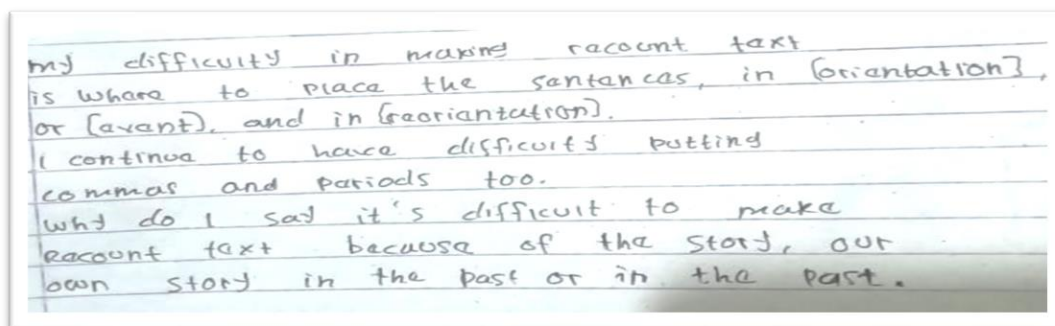 my difficulty in making racount taxt
is whara to placa the santancas, in [oriantation],
or [avant], and in [raoriantation].
I continua to hava difficulty putting
commas and pariods too.
why do I say it's difficult to maka
Racount taxt bacausa of tha story, our
own story in tha past or in tha past.